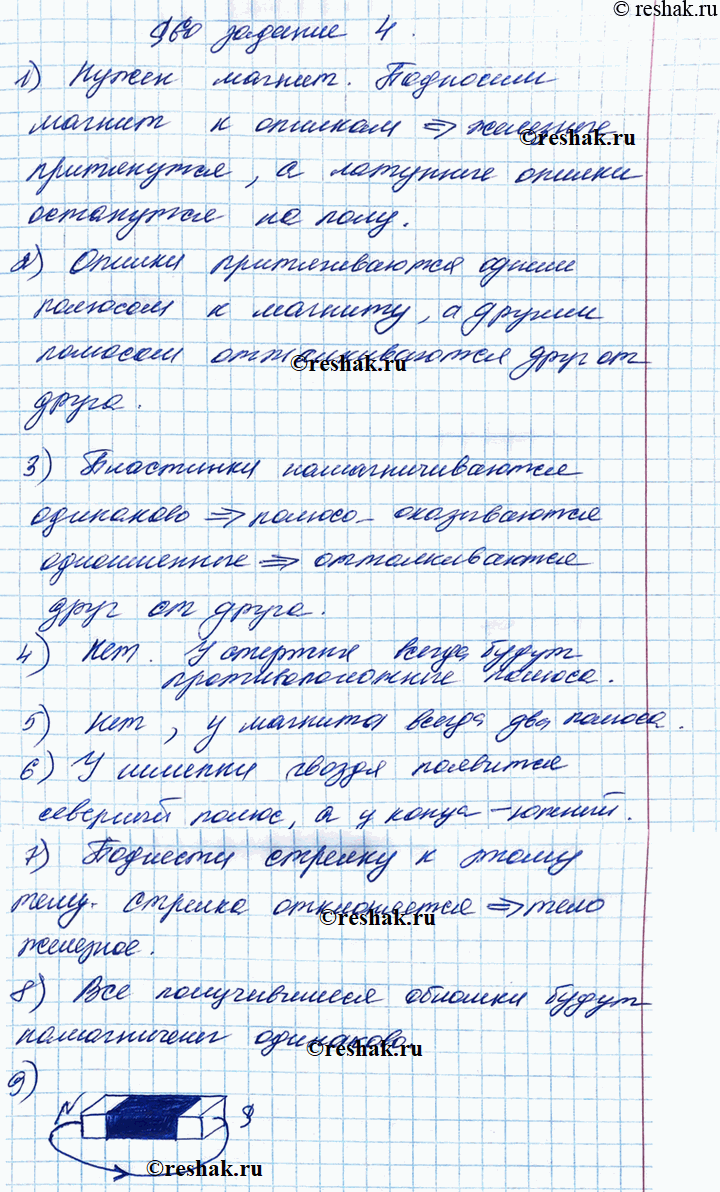 © reshak.ru
§60 задание 4.
1) Нужен магнит. Подносим
магнит к опилкам ⇒ железные
©reshak.ru
притянутся, а латунные опилки
останутся на полу.
2) Опилки притягиваются одним
полюсом к магниту, а другим
полюсом отталкиваются друг от
©reshak.ru
друга.
3) Пластинки намагничиваются
одинаково ⇒ полюса оказываются
одноименные ⇒ отталкиваются
друг от друга.
4) Нет. У стержня всегда будут
противоположные полюса.
5) Нет, у магнита всегда два полюса.
6) У шляпки гвоздя появится
северный полюс, а у конца – южный.
7) Поднести стрелку к этому
телу. Стрелка отклоняется ⇒ тело
©reshak.ru
железное.
8) Все получившиеся обломки будут
намагничены одинаково.
©reshak.ru
9)
N S
©reshak.ru